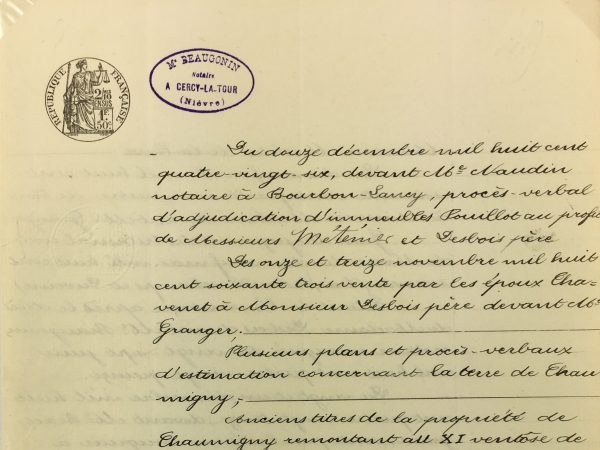 RÉPUBLIQUE FRANÇAISE
2/10 EN SUS
1F 50c
Me BEAUGONIN
Notaire
A CERCY-LA-TOUR
(Nièvre)
Du douze décembre mil huit cent
quatre-vingt-six, devant Me Naudin
notaire à Bourbon-Lancy, procès-verbal
d'adjudication d'immeubles Pouillot au profit
de Messieurs Méténier et Desbois père
Des onze et treize novembre mil huit
cent soixante trois vente par les époux Cha-
venet à Monsieur Desbois père devant Me
Granger.
Plusieurs plans et procès-verbaux
d'estimation concernant la terre de Chau
migny,-
Anciens titres de la propriété de
Chaumigny remontant au XI ventôse de